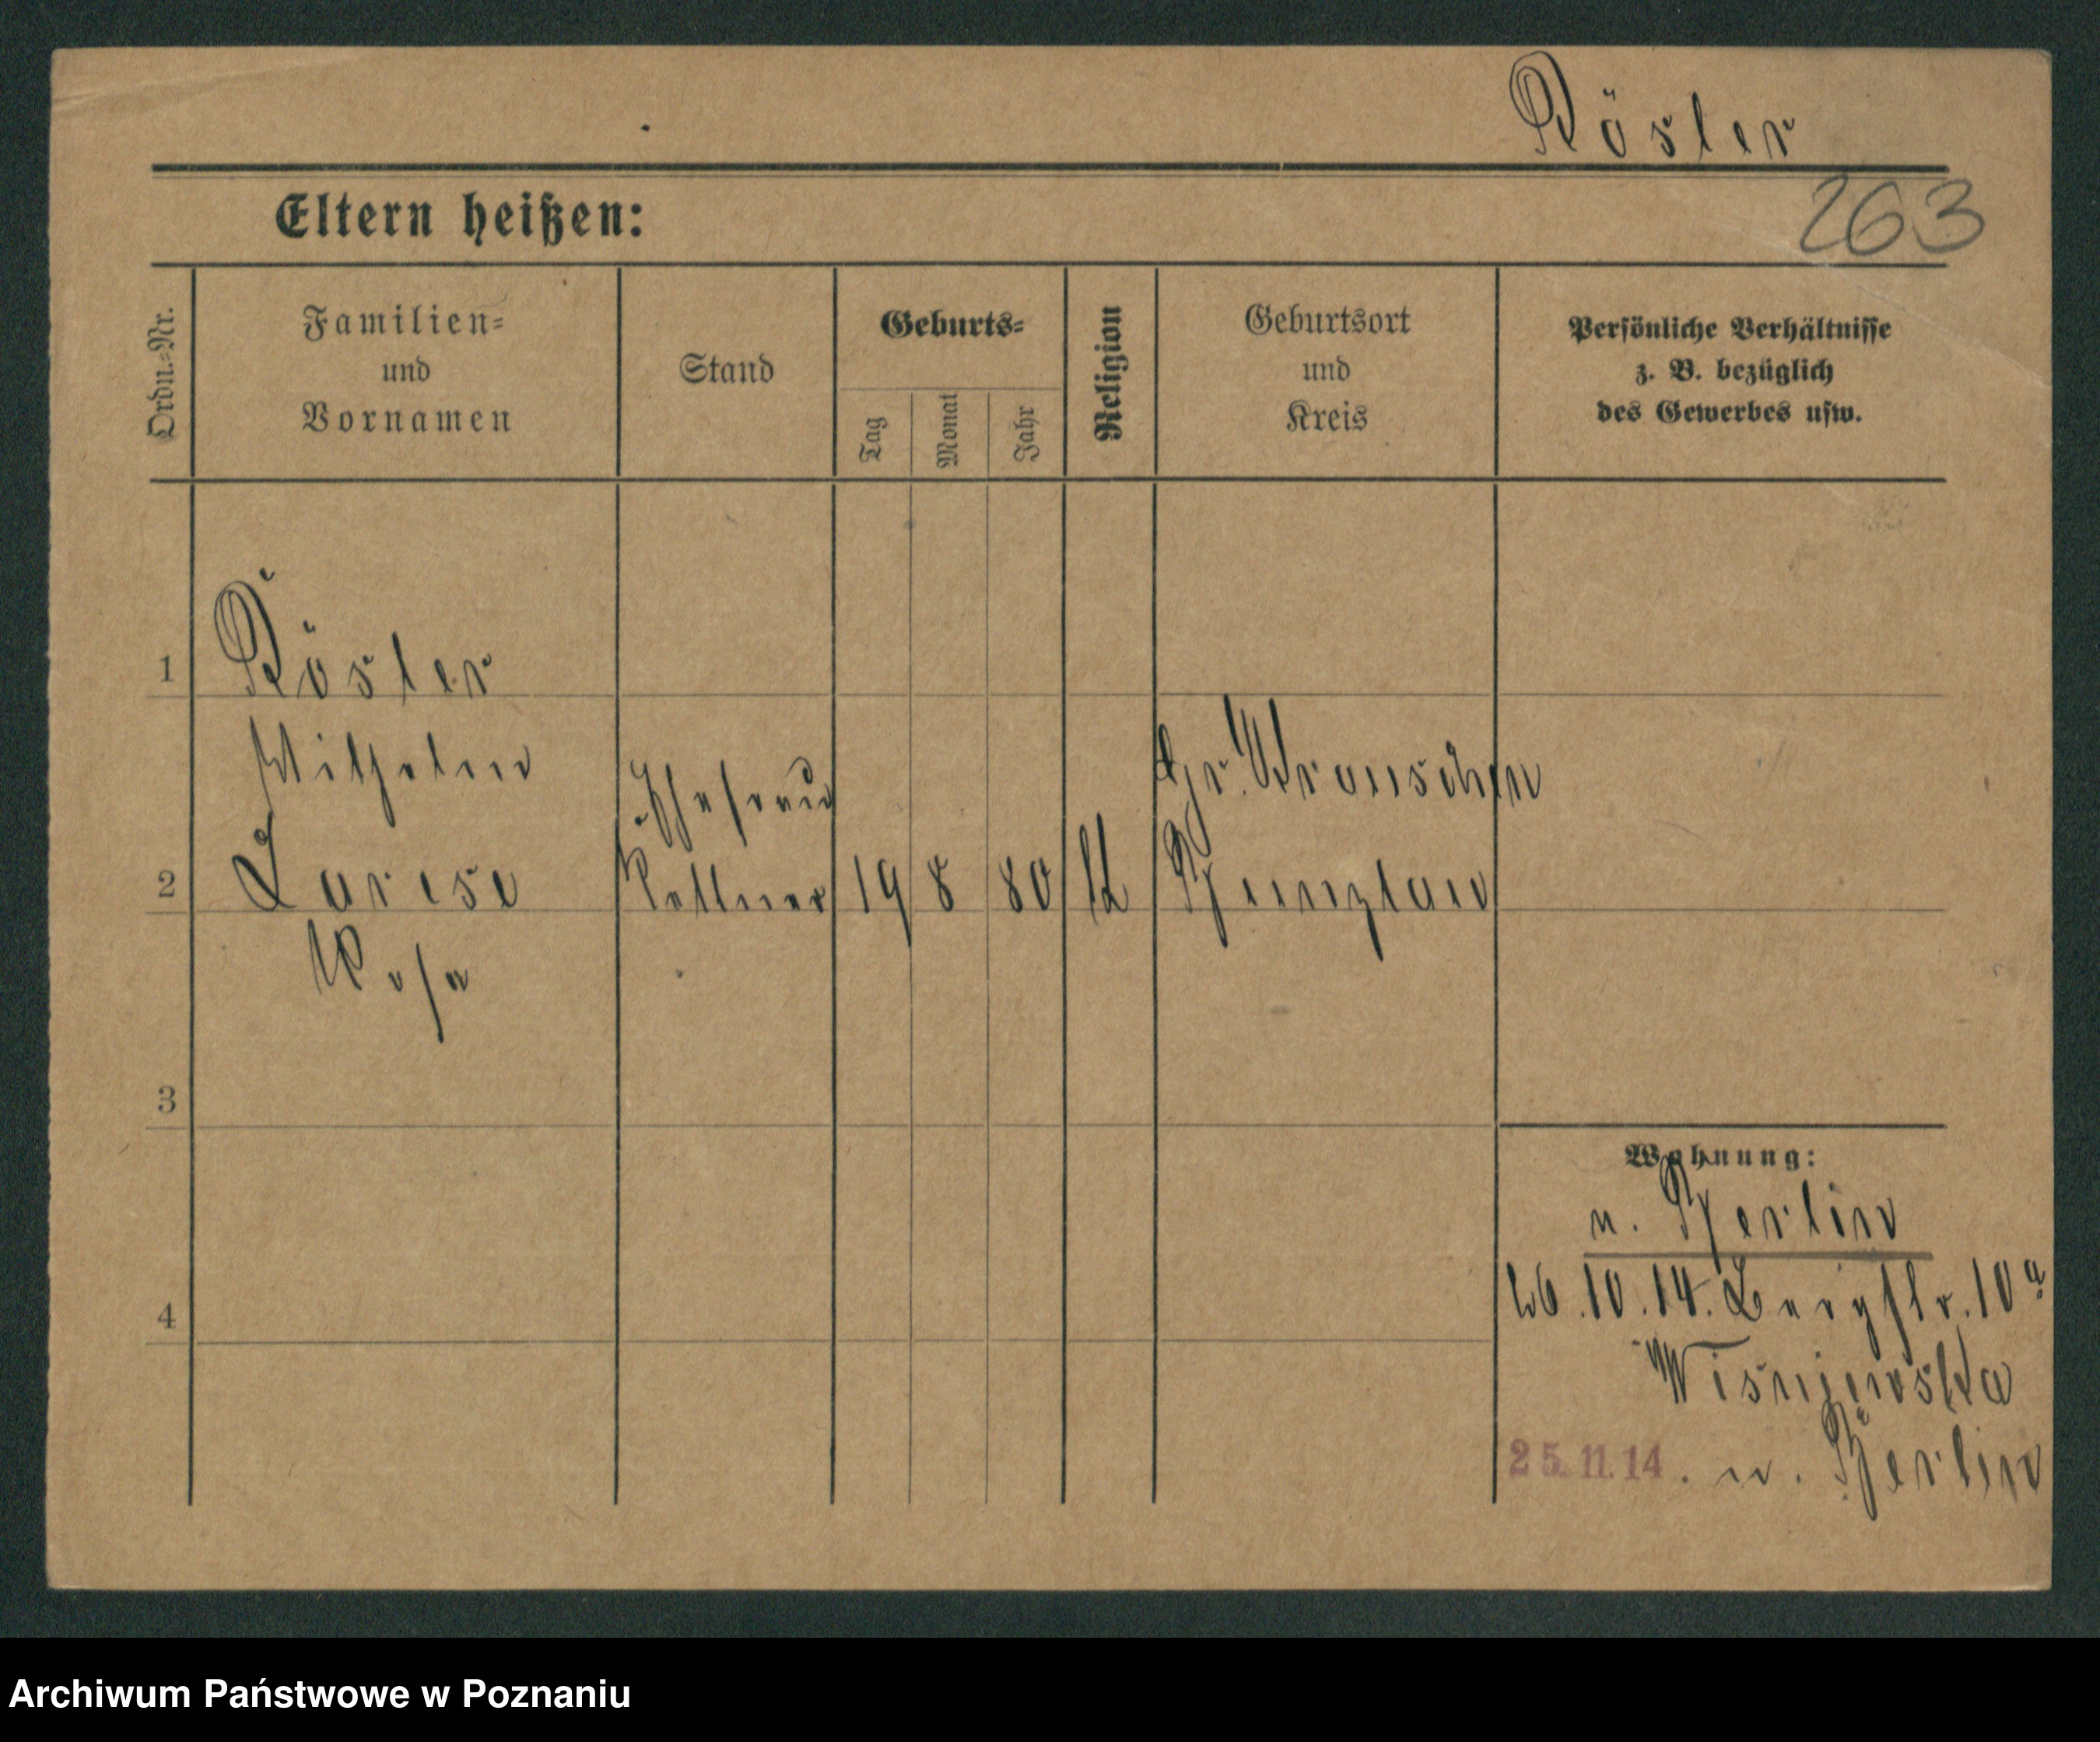 Rösler
263
Eltern heißen:
Ordn.-Nr.
Familien-
und
Vornamen
Stand
Geburts-
Tag
Monat
Jahr
Religion
Geburtsort
und
Kreis
Persönliche Verhältnisse
z. B. bezüglich
des Gewerbes usw.
1
Rösler
Wilhelm
Ehefrau
Gr.
2
Kellner
19
8
80
Bunzlau
3
Wohnung:
n. Berlin
26.10.14. Bergstr. 10a
4
Wisniewska
25.11.14. n. Berlin
Archiwum Państwowe w Poznaniu